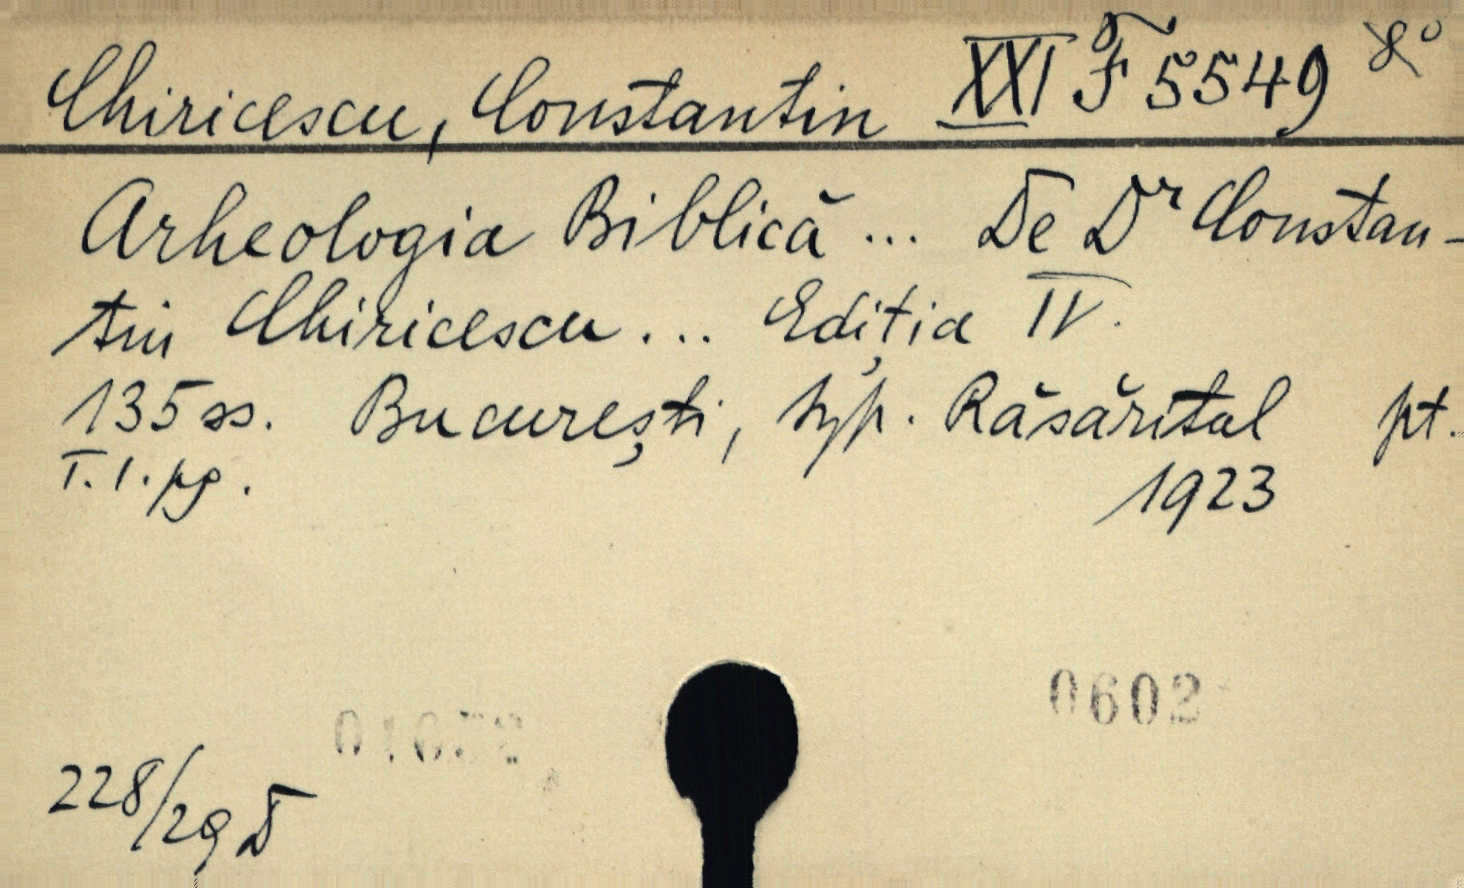 Chiricescu, Constantin XXI F 5549 8°
Arheologia Biblică ... De Dr Constan-
tin Chiricescu ... Ediția IV.
135 ss. București, typ. Răsăritul pt.
T. I. pg. 1923
0602
228/29 D